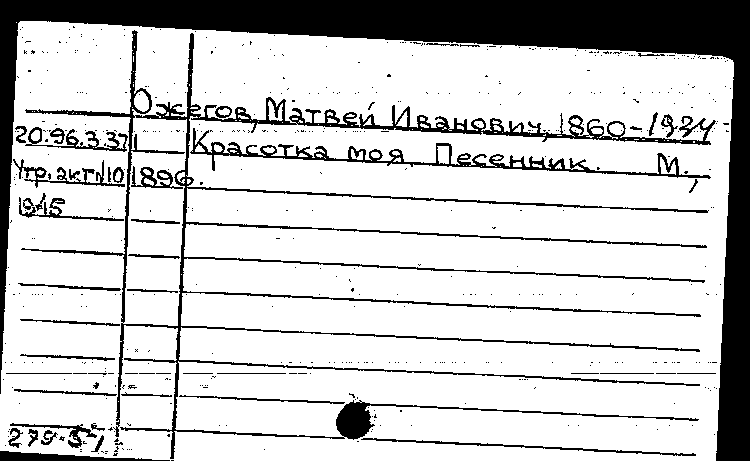 Ожегов, Матвей Иванович, 1860-1934
20.96.3.37 Красотка моя. Песенник. М.,
Утр. акт №10 1896.
1945
279-57